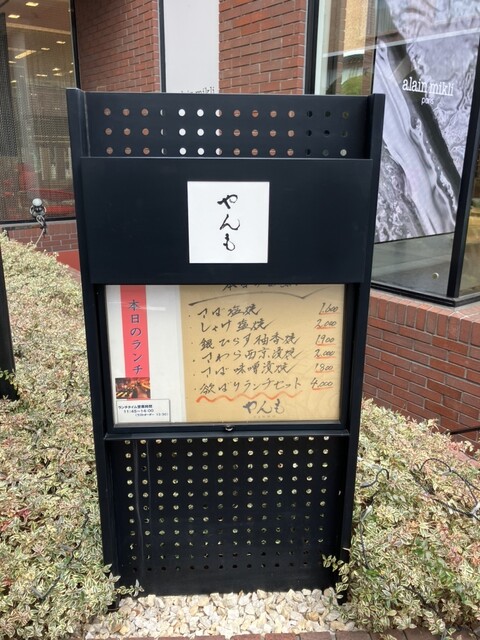 alain mikli
paris
やんも
本日のランチ
・さば塩焼 1,600
・しゃけ塩焼 2,000
・銀ひらす柚香焼 1,900
・さわら西京漬焼 2,000
・さば味噌漬焼 1,800
・欲ばりランチセット 4,000
やんも
ランチタイム営業時間